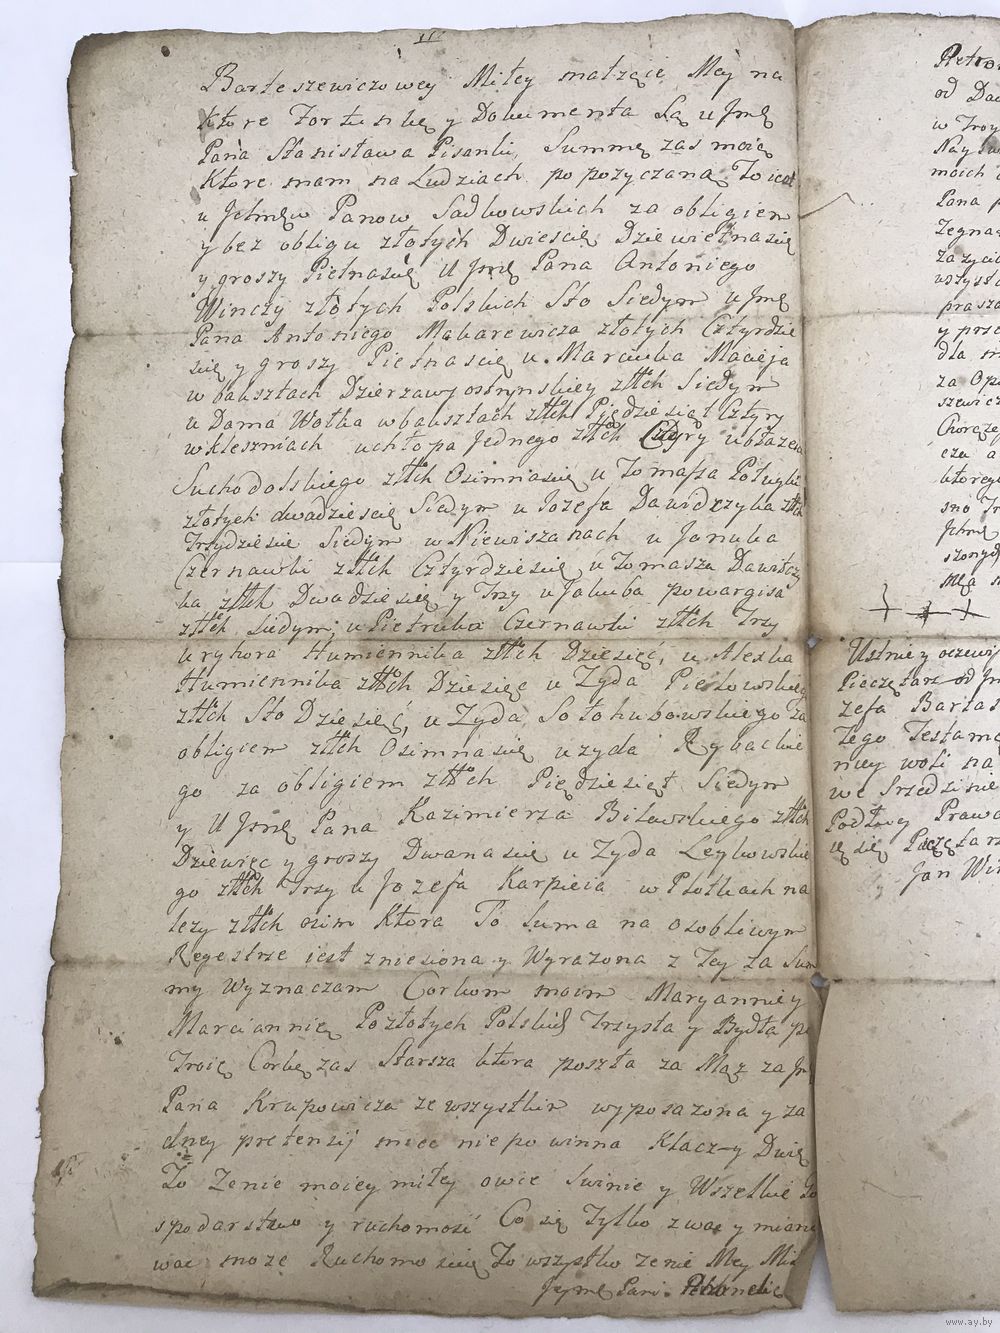 Barteszewiczowey Miłey małżęce Mey na
które Fortunkę y Dokumenta Są u Jmę
Pana Stanisława Pisanki, Summę zas moię
Które mam na Ludziach popożyczaną To iest
u Ichmęw Panow Sadkowskich za obligiem
y bez obligu złotych Dwiescię Dziewietnascię
y groszy Pietnascię U Jmę Pana Antoniego
Winczy złotych Polskich Sto Siedym u Jmę
Pana Antoniego Makarewicza złotych Cztyrdzie
scię y groszy Pietnascię u Marcuka Macieja
w baksztach Dzierzawy ostrynskiey złłch Siedym
u Dama Wołka w baksztach złłch Piędziesiąt Cztyry
w kleszniach uchłopa Jednego złłch Cztyry u błazeia
Suchodolskiego złłch Osimnascię u Tomassa
złotych dwadziescię Siedym u Jozefa Dawidczyka złłch
Trzydziescie Siedym w Niewiszanach u Januka
Czernawki złłch Cztyrdziescię u Tomasza Dawidczy
ka złłch Dwadziescię y Trzy u Jakuba powargisa
złłch siedym, u Pietruka Czernawki złłch Trzy
u ryhora Humiennika złłch Dziesięć, u Alexka
Humiennika złłch Dziesięc u Zyda
złłch Sto Dziesięć, u Zyda Sołohubowskiego za
obligiem złłch Osimnascię u zyda Rybackie
go za obligiem złłch Pięędziesiąt Siedym
y U Jmę Pana Kazimierza Biławskiego złłch
Dziewięc y groszy Dwanascię u Zyda Leykowskie
go złłch Trzy u Jozefa Karpiecia w Płotkach na
lezy złłch osim Która To Suma na osobliwym
Regestrze iest zniesiona y Wyrazona z Tey za Sum
my Wyznaczam Corkom moim Maryannie y
Marciannię Pozłotych Polskich Trzysta y Bydła po
Troię Corkę zas Starsza ktora poszła za Mąz za Jm
Pana Krupowicza ze wszystkim wyposazona y za
dney pretensij miec niepowinna Klaczy Dwię
To Zenie moiey miłey owce Swinie y Wszelkie Go
spodarstwo y ruchomość Co się Tylko zwac y miano
wac moze Ruchomoscię To wszystko zenie Mey Mi
Jeymę Pani Petronelię
Pietron
od Da
w Troy
Nayśw
moich
Pana p
Zegna
za zyci
wszyst
prasza
y prze
dla
za Opi
szewicz
Chorąze
cza a
ktoreg
sno
Jchmę
szonych
mą
Ustnie y oczewi
Pieczętarz od
zefa Bartas
Tego Testame
niey woli na
we Srzedzinie
Podług Prawa
ię się Pieczętarz
Jan Win
www.ay.by